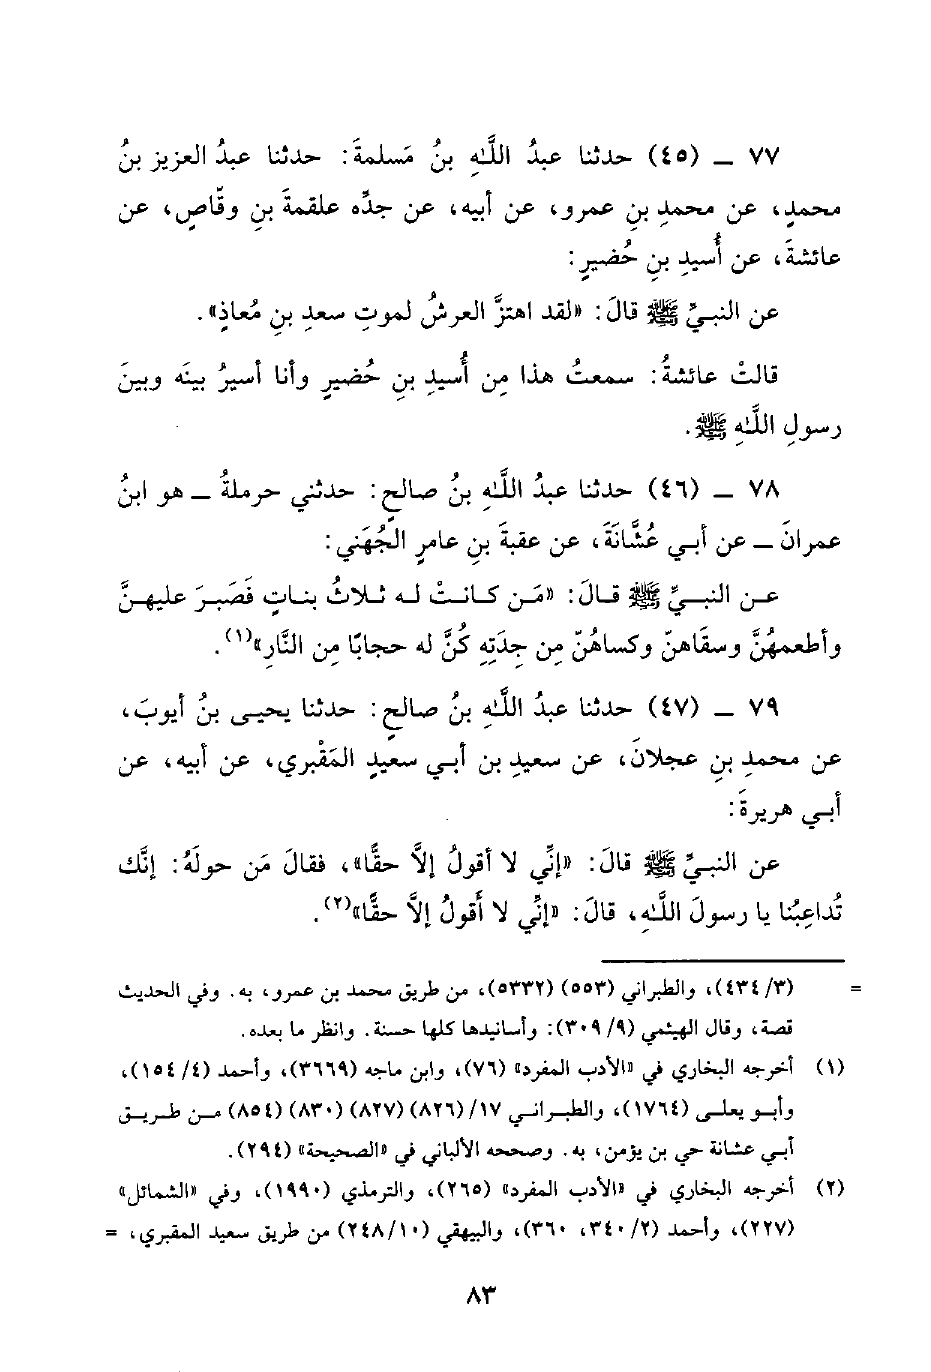 ٧٧ ـ (٤٥) حدثنا عبدُ اللَّهِ بنُ مَسلمةَ: حدثنا عبدُ العزيز بنُ
محمدٍ، عن محمدِ بنِ عمرو، عن أبيه، عن جدِّه علقمةَ بنِ وقَّاصٍ، عن
عائشةَ، عن أُسيدِ بنِ حُضيرٍ:
عن النبيِّ ﷺ قالَ: «لقد اهتزَّ العرشُ لموتِ سعدِ بنِ مُعاذٍ».
قالتْ عائشةُ: سمعتُ هذا مِن أُسيدِ بنِ حُضيرٍ وأنا أسيرُ بينَه وبينَ
رسولِ اللَّهِ ﷺ.
٧٨ ـ (٤٦) حدثنا عبدُ اللَّهِ بنُ صالحٍ: حدثني حرملةُ ـ هو ابنُ
عمرانَ ـ عن أبي عُشَّانَةَ، عن عقبةَ بنِ عامرٍ الجُهَني:
عن النبيِّ ﷺ قالَ: «مَن كانتْ له ثلاثُ بناتٍ فَصَبرَ عليهنَّ
وأطعمهُنَّ وسقَاهنّ وكساهُنّ مِن جِدَتِهِ كُنَّ له حجابًا مِن النَّارِ»(١).
٧٩ ـ (٤٧) حدثنا عبدُ اللَّهِ بنُ صالحٍ: حدثنا يحيى بنُ أيوبَ،
عن محمدِ بنِ عجلانَ، عن سعيدِ بن أبي سعيدٍ المَقْبري، عن أبيه، عن
أبي هريرةَ:
عن النبيِّ ﷺ قالَ: «إنِّي لا أقولُ إلاَّ حقًّا»، فقالَ مَن حولَهُ: إنَّك
تُداعِبُنا يا رسولَ اللَّهِ، قالَ: «إنِّي لا أَقولُ إلاَّ حقًّا»(٢).
= (٤٣٤/٣)، والطبراني (٥٥٣) (٥٣٣٢)، من طريق محمد بن عمرو، به. وفي الحديث
قصة، وقال الهيثمي (٣٠٩/٩): وأسانيدها كلها حسنة. وانظر ما بعده.
(١) أخرجه البخاري في «الأدب المفرد» (٧٦)، وابن ماجه (٣٦٦٩)، وأحمد (١٥٤/٤)،
وأبو يعلى (١٧٦٤)، والطبراني ١٧/ (٨٢٦) (٨٢٧) (٨٣٠) (٨٥٤) من طريق
أبي عشانة حي بن يؤمن، به. وصححه الألباني في «الصحيحة» (٢٩٤).
(٢) أخرجه البخاري في «الأدب المفرد» (٢٦٥)، والترمذي (١٩٩٠)، وفي «الشمائل»
(٢٢٧)، وأحمد (٣٤٠/٢، ٣٦٠)، والبيهقي (٢٤٨/١٠) من طريق سعيد المقبري، =
٨٣